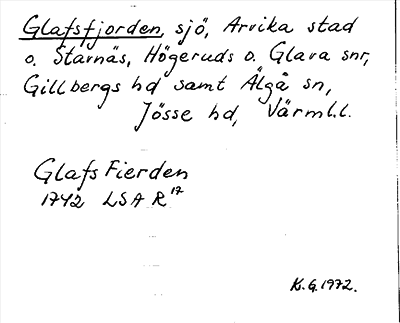 Glafsfjorden, sjö, Arvika stad
o. Stavnäs, Högeruds o. Glava snr,
Gillbergs hd samt Älgå sn,
Jösse hd, Värml.l.
Glafs Fierden
1742 LSA R17
K.G.1972.